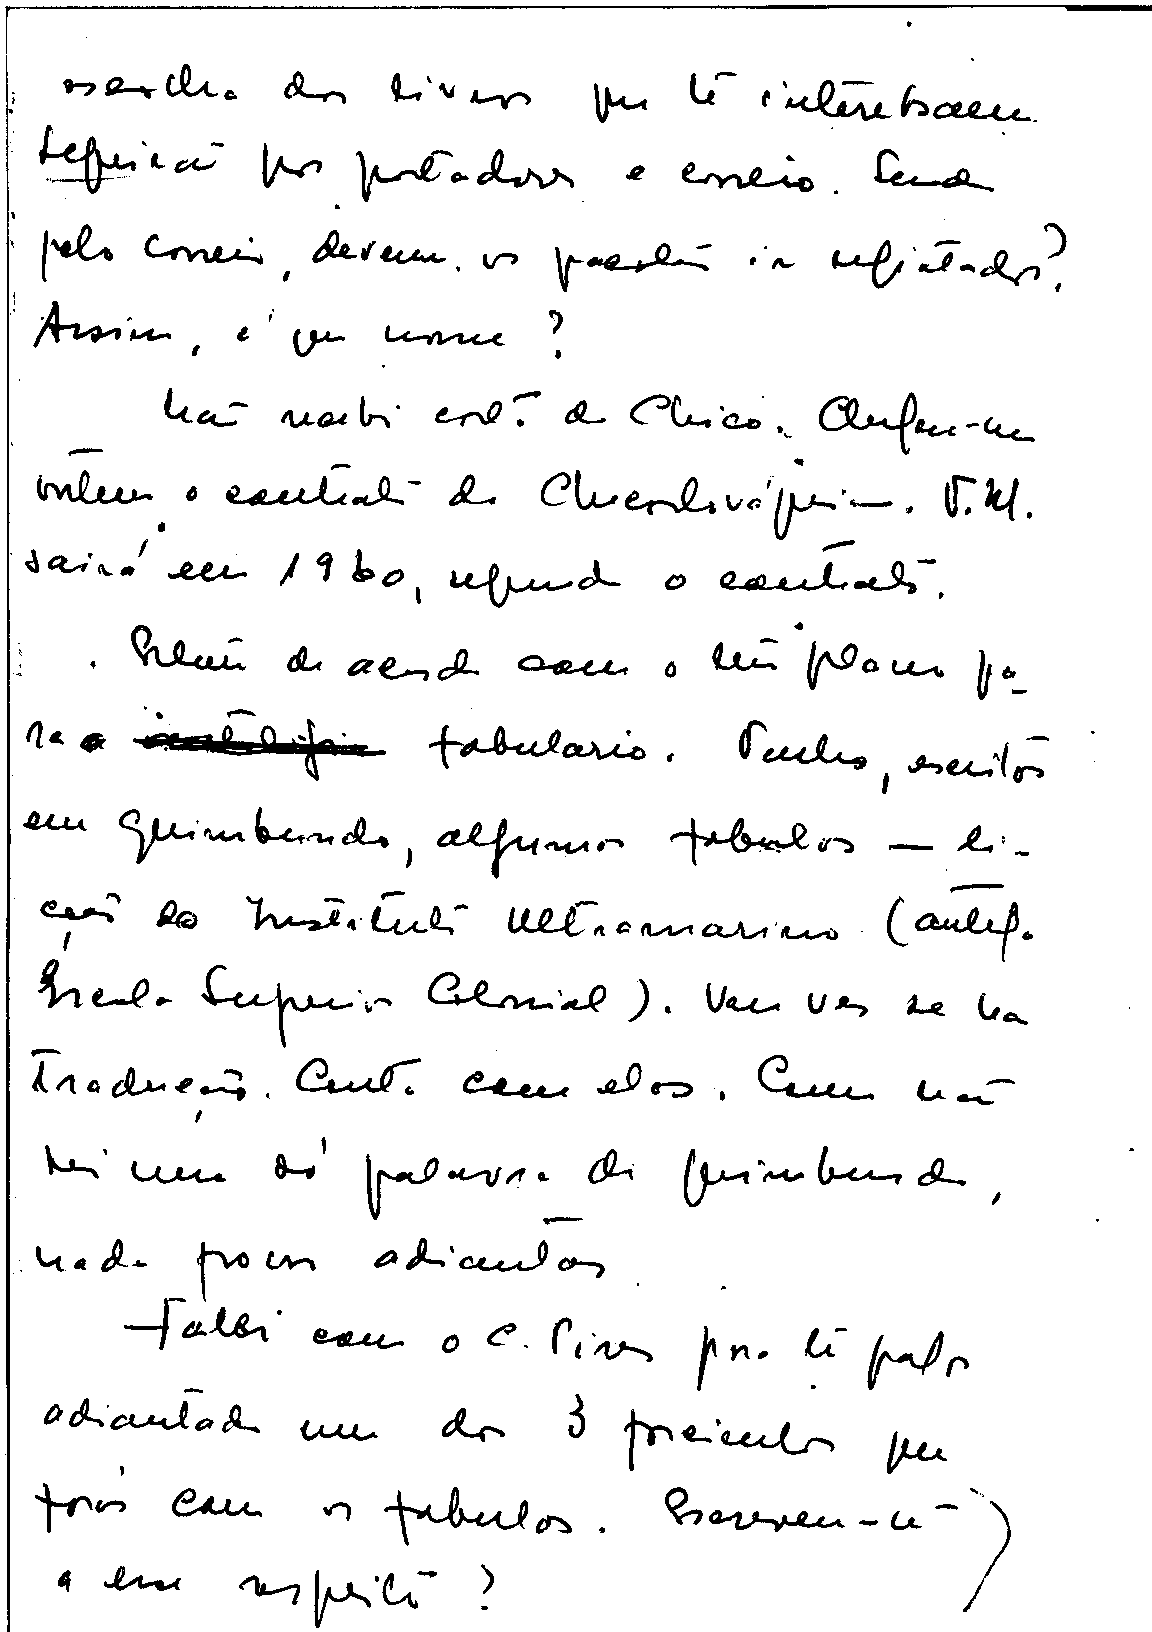 escolha dos livros que te interessam
seguirá por portadores e correio. Sendo
pelo correio, devem os pacotes ir registados?
Assim, é que nome?
Não recebi cartão do Chico. Chegou-me
ontem o contrato da Checoslováquia. T.M.
sairá em 1960, segundo o contrato.
Estou de acordo com o teu plano pa-
ra o fabulario. Tenho, escritos
em Quimbundo, algumas fabulas — li-
ção do Instituto Ultramarino (antiga
Escola Superior Colonial). Vou ver se há
tradução. Conta com elas. Como não
sei uma só palavra de quimbundo,
nada posso adiantar
Falei com o C. Pires para te pagar
adiantado um dos 3 fasciculos que
farás com as fabulas. Escreveu-te
a esse respeito?